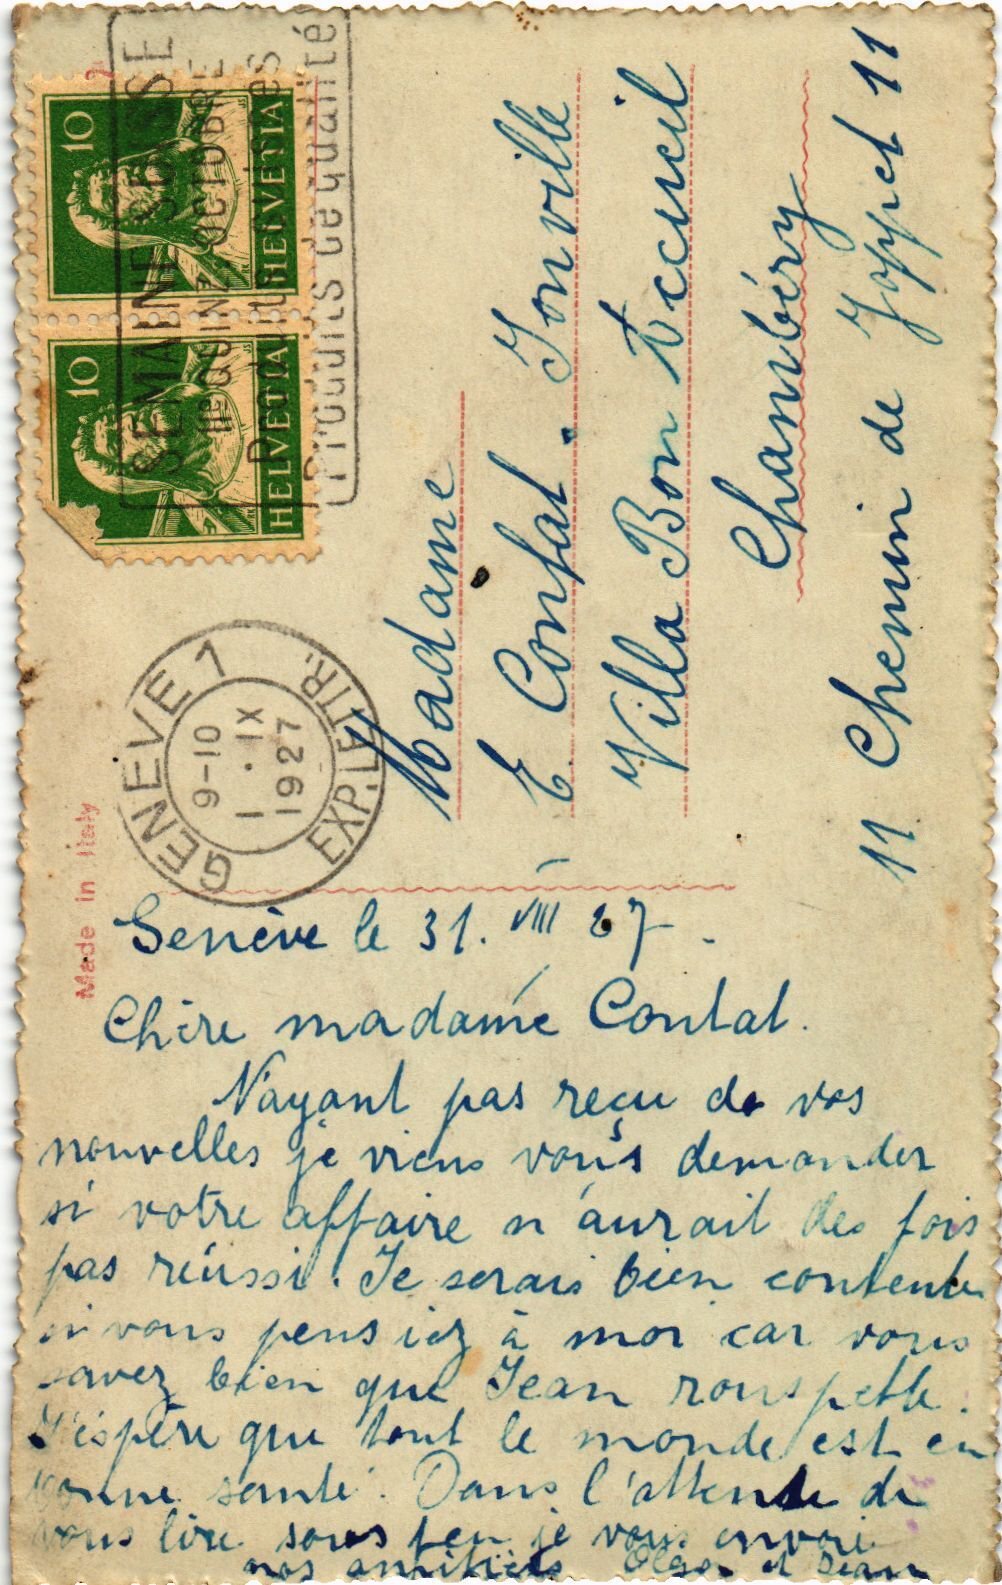 10
HELVETIA
10
HELVETIA
SEMAINE SUISSE
IIe QUINZ. OCTOBRE
Produits de qualité
GENÈVE 1
9-10
1. IX
1927
EXP. LETTR.
Made in Italy
Madame
E. Contat. Tonville
Villa Bon Accueil
Chambéry
11 Chemin de Joppet 11
Genève le 31. VIII 27.
Chère madame Contat.
N'ayant pas reçu de vos
nouvelles je viens vous demander
si votre affaire n'aurait des fois
pas réussi. Je serais bien contente
si vous pensiez à moi car vous
savez bien que Jean rouspette.
J'espère que tout le monde est en
bonne santé. Dans l'attende de
vous lire sous peu je vous envoie
nos amitiés et Jean